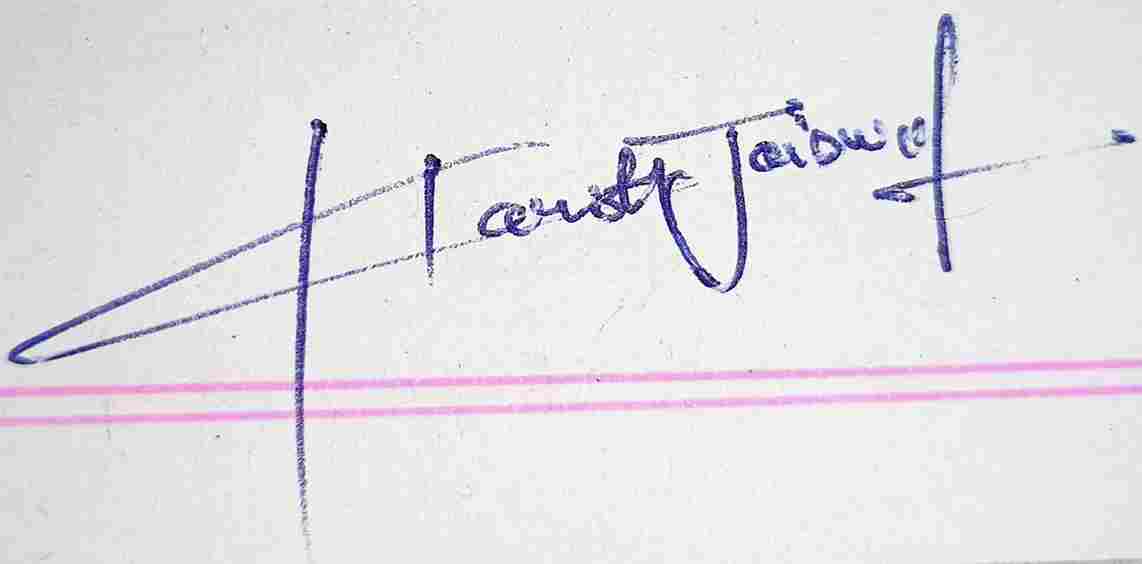 Harsh Jaiswal